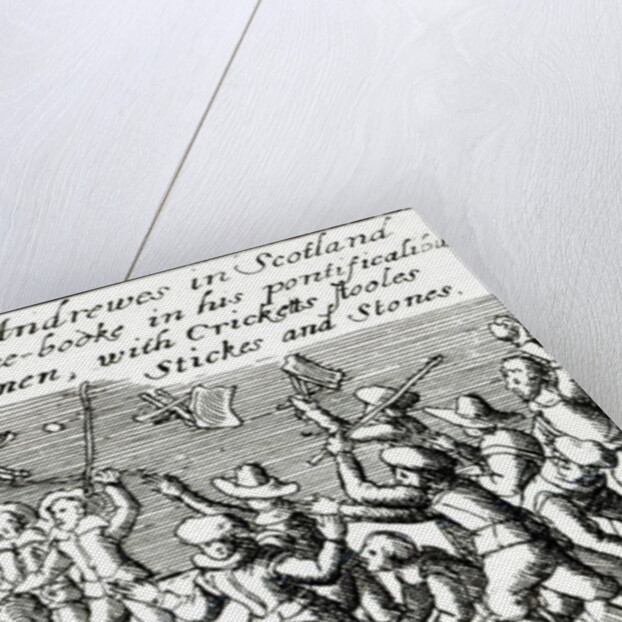 Andrewes in Scotland
e-booke in his pontificalibu
men, with Cricketts stooles
Stickes and Stones.